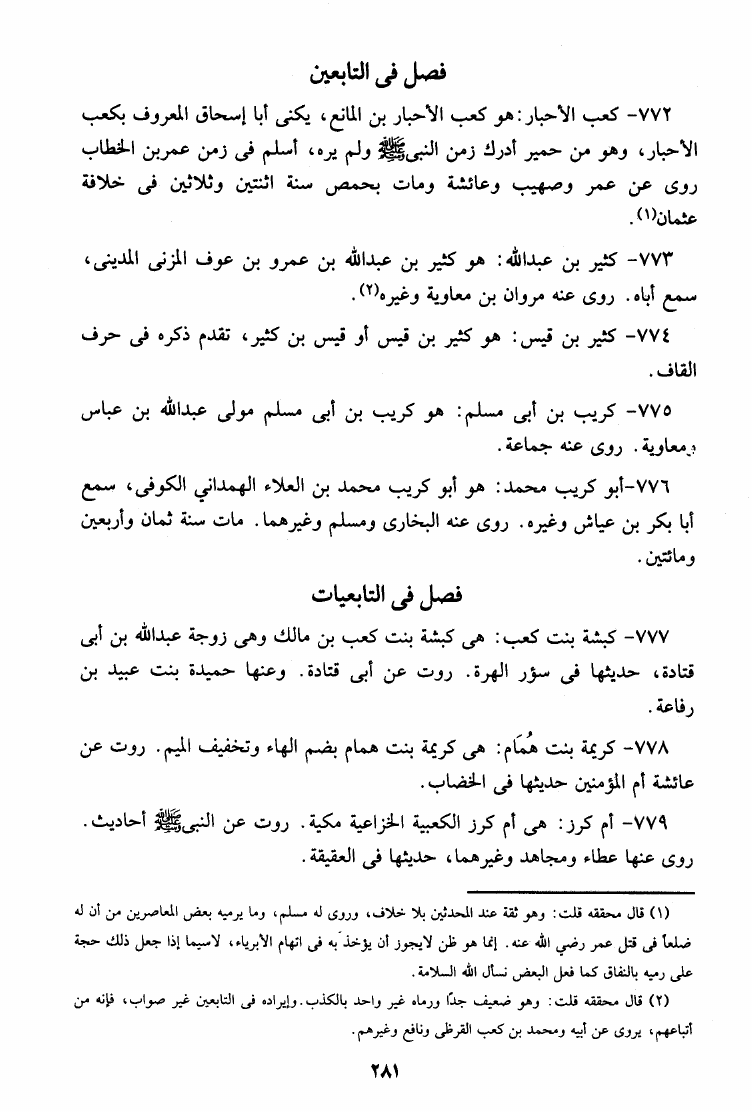 فصل فى التابعين
٧٧٢- كعب الأحبار: هو كعب الأحبار بن المانع، يكنى أبا إسحاق المعروف بكعب
الأحبار، وهو من حمير أدرك زمن النبى ﷺ ولم يره، أسلم فى زمن عمربن الخطاب
روى عن عمر وصهيب وعائشة ومات بحمص سنة اثنتين وثلاثين فى خلافة
عثمان(١).
٧٧٣- كثير بن عبدالله: هو كثير بن عبدالله بن عمرو بن عوف المزنى المدينى،
سمع أباه. روى عنه مروان بن معاوية وغيره(٢).
٧٧٤- كثير بن قيس: هو كثير بن قيس أو قيس بن كثير، تقدم ذكره فى حرف
القاف.
٧٧٥- كريب بن أبى مسلم: هو كريب بن أبى مسلم مولى عبدالله بن عباس
ومعاوية. روى عنه جماعة.
٧٧٦-أبو كريب محمد: هو أبو كريب محمد بن العلاء الهمداني الكوفى، سمع
أبا بكر بن عياش وغيره. روى عنه البخارى ومسلم وغيرهما. مات سنة ثمان وأربعين
ومائتين.
فصل فى التابعيات
٧٧٧- كبشة بنت كعب: هى كبشة بنت كعب بن مالك وهى زوجة عبدالله بن أبى
قتادة، حديثها فى سؤر الهرة. روت عن أبى قتادة. وعنها حميدة بنت عبيد بن
رفاعة.
٧٧٨- كريمة بنت هُمَام: هى كريمة بنت همام بضم الهاء وتخفيف الميم. روت عن
عائشة أم المؤمنين حديثها فى الخضاب.
٧٧٩- أم كرز: هى أم كرز الكعبية الخزاعية مكية. روت عن النبى ﷺ أحاديث.
روى عنها عطاء ومجاهد وغيرهما، حديثها فى العقيقة.
(١) قال محققه قلت: وهو ثقة عند المحدثين بلا خلاف، وروى له مسلم، وما يرميه بعض المعاصرين من أن له
ضلعاً فى قتل عمر رضي الله عنه. إنما هو ظن لايجوز أن يؤخذ به فى اتهام الأبرياء، لاسيما إذا جعل ذلك حجة
على رميه بالنفاق كما فعل البعض نسأل الله السلامة.
(٢) قال محققه قلت: وهو ضعيف جدًا ورماه غير واحد بالكذب.وإيراده فى التابعين غير صواب، فإنه من
أتباعهم، يروى عن أبيه ومحمد بن كعب القرظى ونافع وغيرهم.
٢٨١